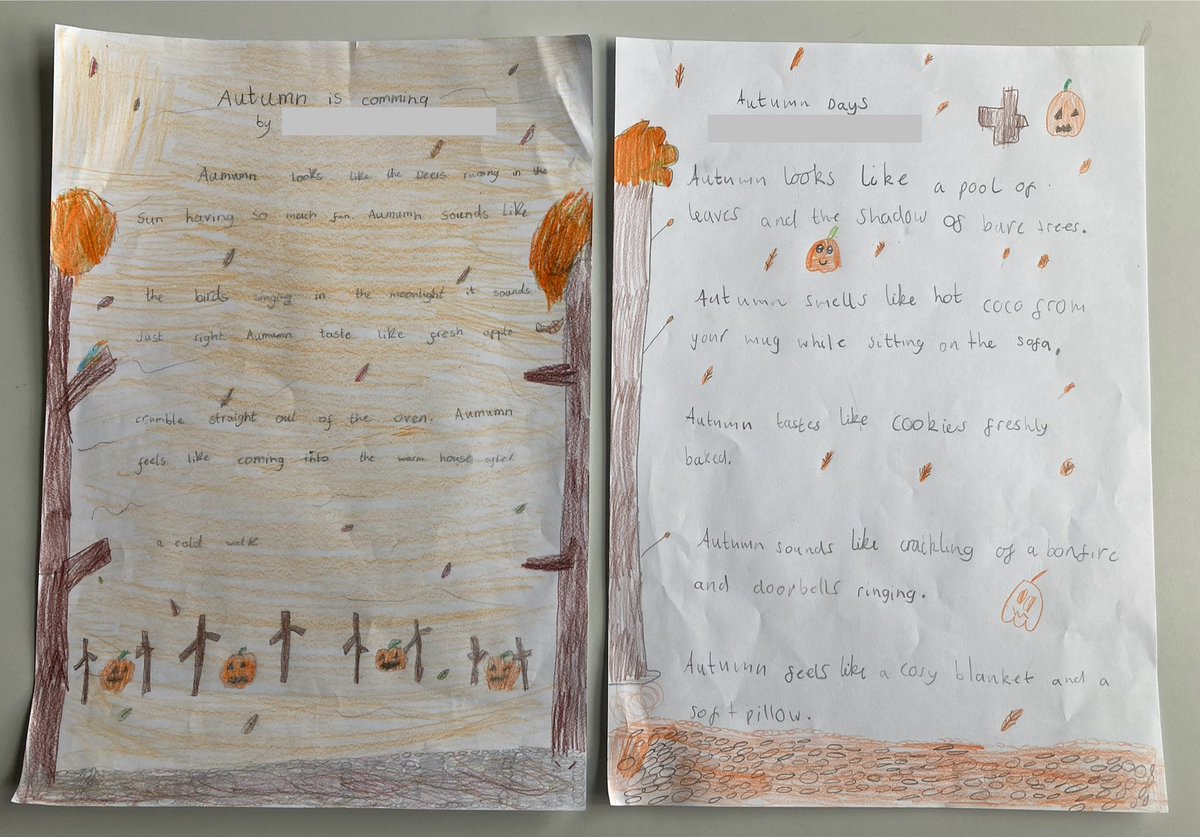 Autumn is comming
by
Aumumn looks like the Deers running in the
sun having so much fun. Aumumn sounds like
the birds singing in the moonlight it sounds
Just right Aumumn taste like fresh apple
crumble straight out of the oven. Aumumn
feels like coming into the warm house after
a cold walk
Autumn Days
Autumn looks like a pool of
leaves and the shadow of bare trees.
Autumn smells like hot coco from
your mug while sitting on the sofa.
Autumn tastes like cookies freshly
baked.
Autumn sounds like crackling of a bonfire
and doorbells ringing.
Autumn feels like a cosy blanket and a
soft pillow.